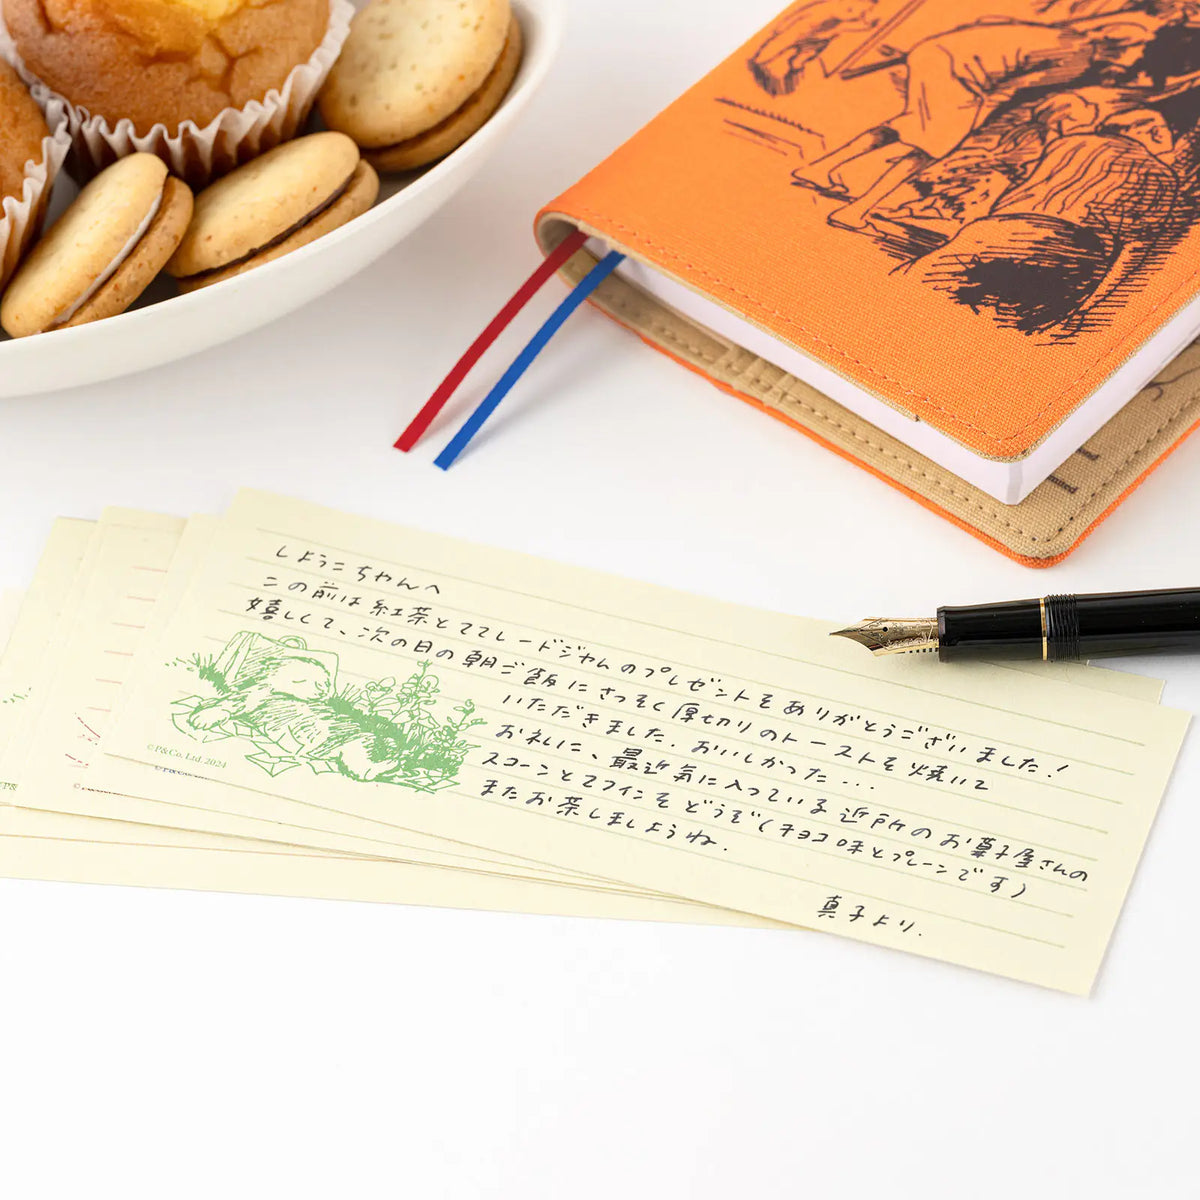 しょうこちゃんへ
この前は紅茶とママレードジャムのプレゼントをありがとうございました!
嬉しくて、次の日の朝ご飯にさっそく厚切りのトーストを焼いて
いただきました。おいしかった...
お礼に、最近気に入っている近所のお菓子屋さんの
スコーンとマフィンをどうぞ(チョコ味とプレーンです)
またお茶しましょうね.
真子より.
©P&Co. Ltd. 2024